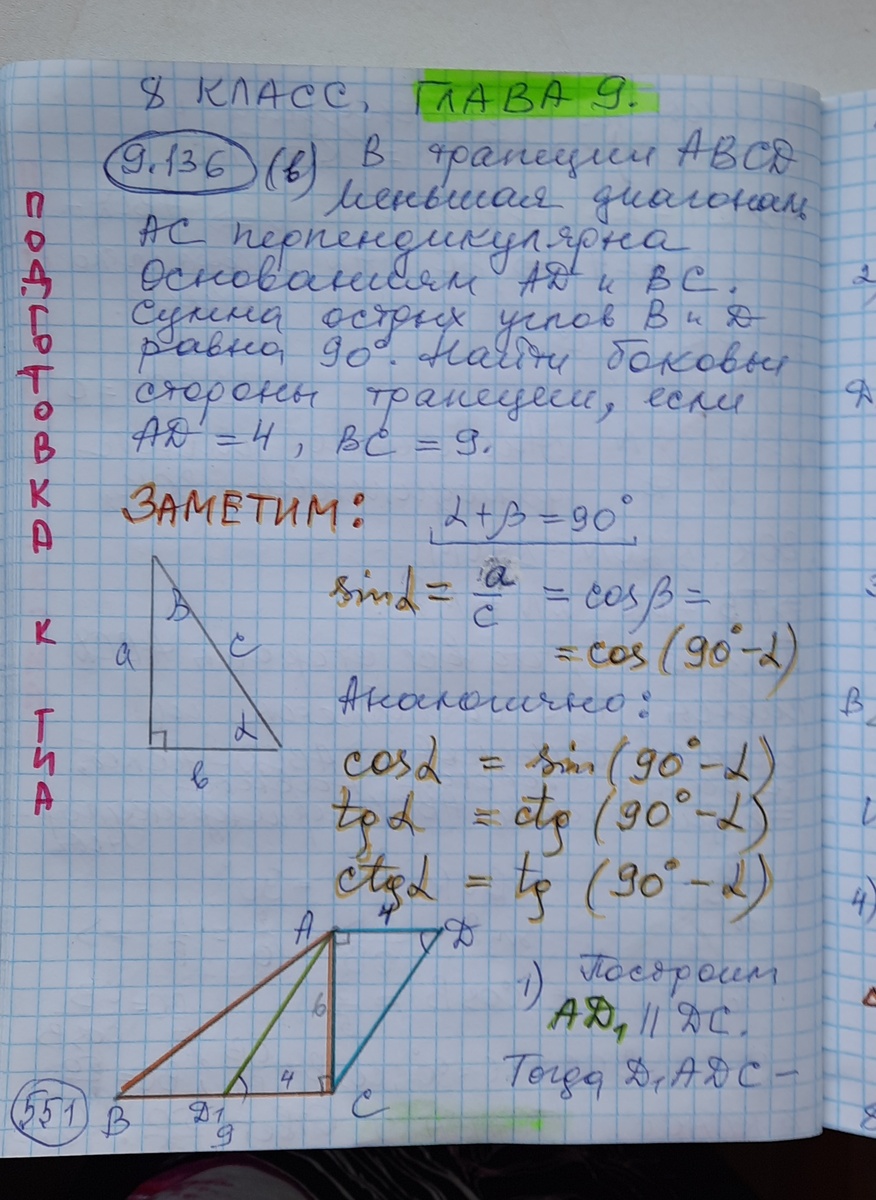 8 КЛАСС, ГЛАВА 9.
9.136 (в) В трапеции ABCD
меньшая диагональ
AC перпендикулярна
основаниям AD и BC.
Сумма острых углов B и D
равна 90°. Найти боковые
стороны трапеции, если
AD = 4, BC = 9.
ПОДГОТОВКА К ТИА
ЗАМЕТИМ: α + β = 90°
sin α = a/c = cos β =
= cos (90° - α)
Аналогично:
cos α = sin (90° - α)
tg α = ctg (90° - α)
ctg α = tg (90° - α)
β
a
c
α
в
A 4 D
6
4
B D₁ C
9
1) Построим
AD₁ || DC.
Тогда D₁ADC –
551